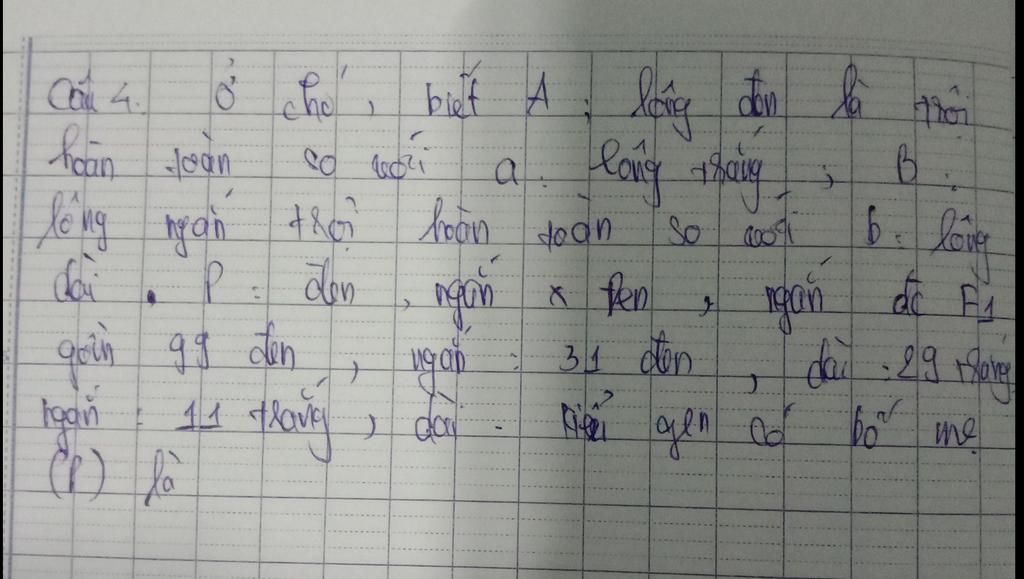 Câu 4. Ở chó, biết A: lông đen là trội
hoàn toàn so với a: lông trắng, B:
lông ngắn trội hoàn toàn so với b: lông
dài. P: đen, ngắn x đen, ngắn đc F1
gồm 99 đen, ngắn: 31 đen, dài: 29 trắng
ngắn: 11 trắng, dài. Kiểu gen có bố mẹ
(P) là